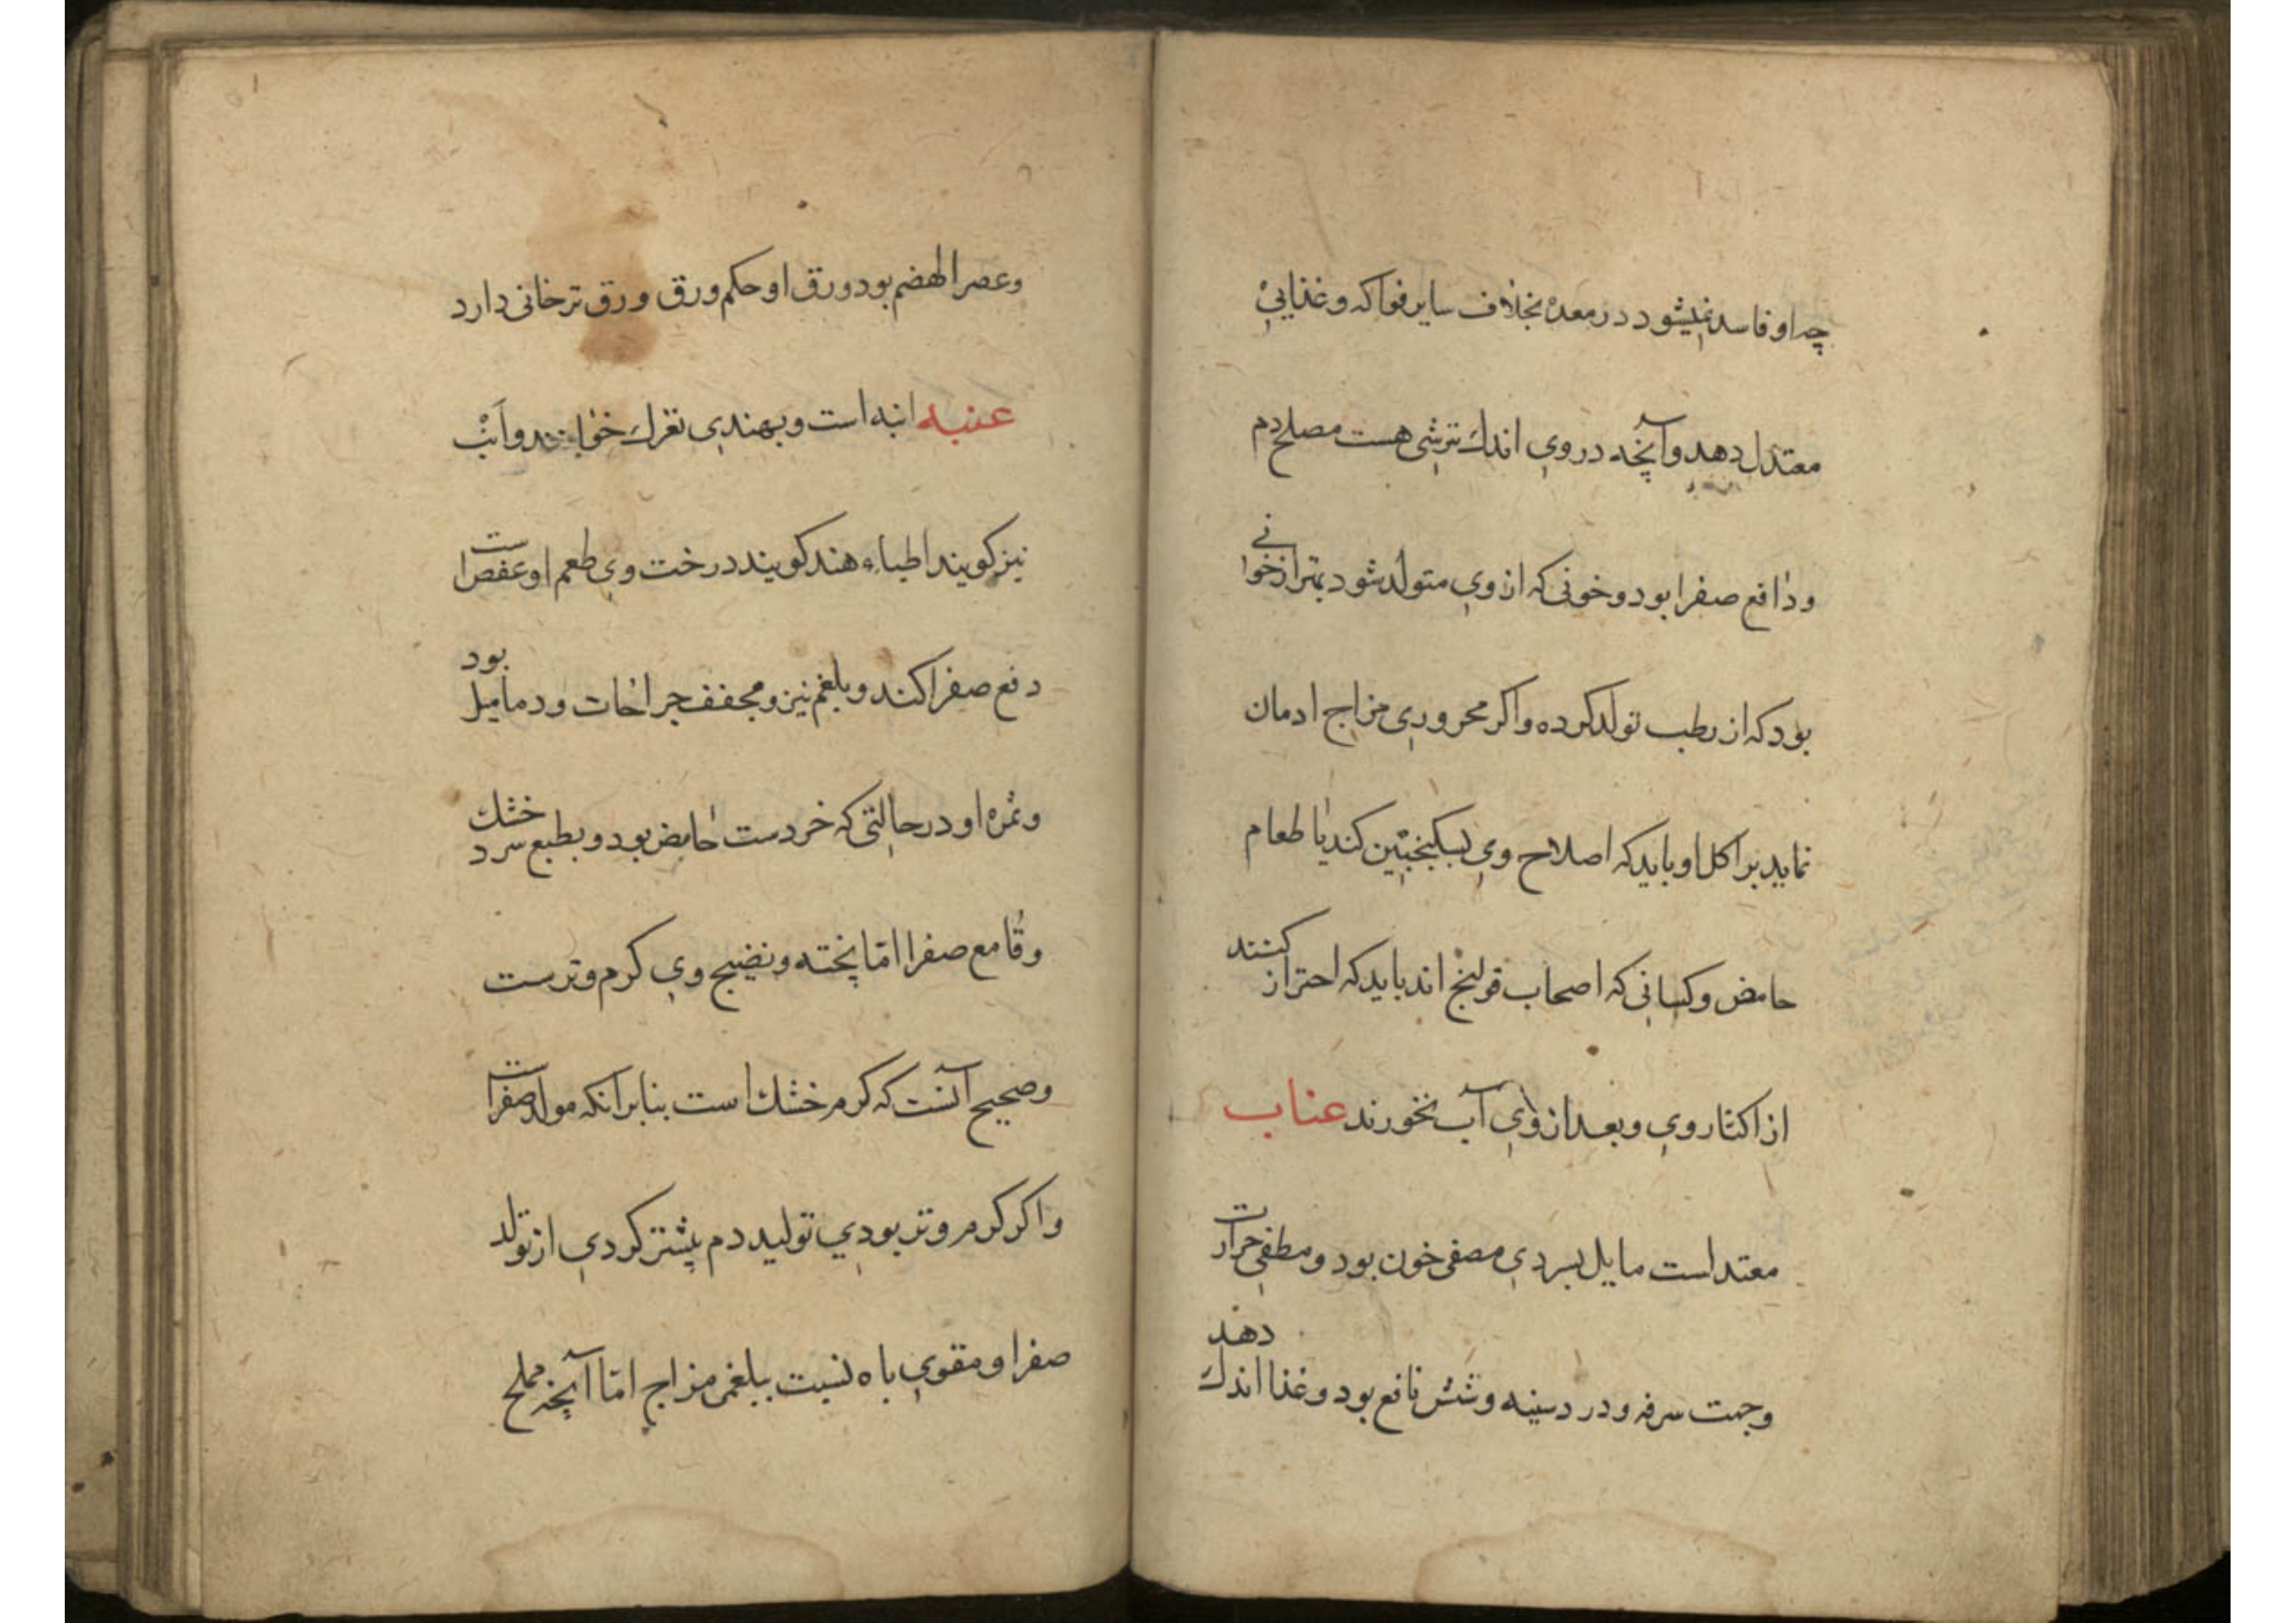 چه او فاسد نمیشود در معده بخلاف سایر فواکه و غذایی
معتدل دهد و آنچه در وی اندك ترشی هست مصلح دم
و دافع صفرا بود و خونی که از وی متولد شود بهتر از خوانی
بود که از رطب تولد کرده و اکر محروری مزاج ادمان
نماید بر اکل او باید که اصلاح وی بسکنجبین کند یا طعام
حامض و کسانی که اصحاب قولنج اند باید که احتراز کنند
از اکثار وی و بعد از وی آب نخورند عناب
معتد است مایل بسردی مصفی خون بود و مطفی حرارت
و جهت سرفه و درد سینه و شش نافع بود و غذا اندك دهد
و عصر الهضم بود ورق او حکم ورق ورق ترخانی دارد
عنبه انبه است و بهندی نغزك خوانند و انب
نیز کویند اطباء هند کویند درخت وی طعم او عفص است
دفع صفرا کند و بلغم نیز و مجفف جراحات و دمامیل بود
و ثمره او در حالتی که خردست حامض بود و بطبع سرد خشك
و قامع صفرا امّا پخته و نضیج وی کرم و ترست
و صحیح آنست که کرم خشك است بنابرانکه مولد صفراست
و اکر کرم و تر بودی تولید دم بیشتر کردی از تولد
صفرا و مقوی باه نسبت ببلغمی مزاج امّا آنچه مملح